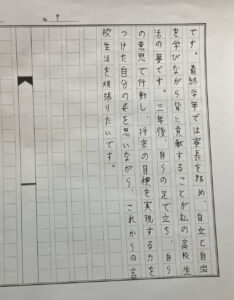 № 7
です。最終学年では室長を務め、自立と自治
を学びながら皆に貢献することが私の高校生
活の夢です。三年後、自らの足で立ち、自ら
の意思で行動し、将来の目標を実現する力を
つけた自分の姿を思いながら、これからの高
校生活を頑張りたいです。